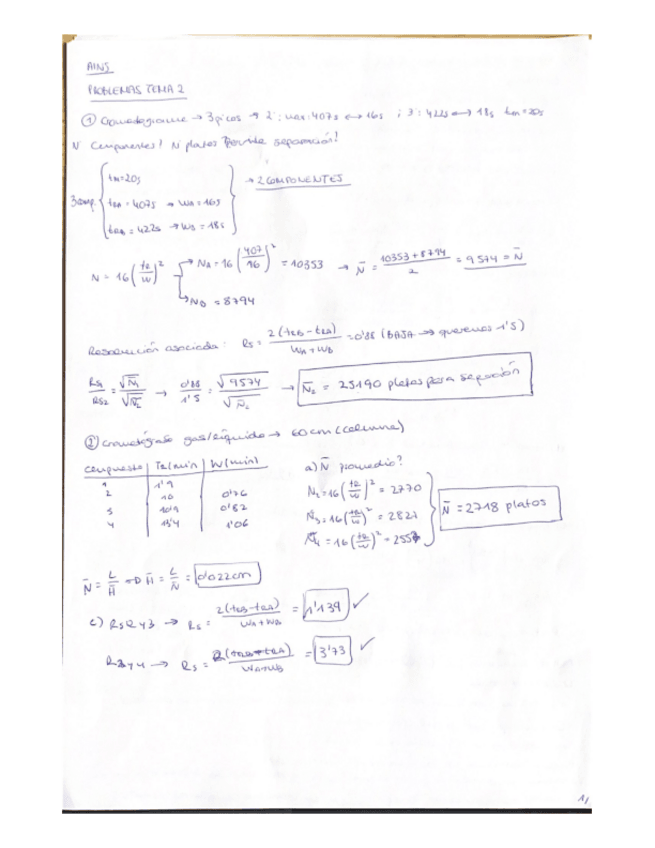 AINS
PROBLEMAS TEMA 2
① Cromatograma → 3 picos → 2: 407s ↔ 16s ; 3: 422s ↔ 18s tm=20s
N componentes? N platos separación?
3 comp. tm=20s
tRA = 407s → WA = 16s
tRB = 422s → WB = 18s
→ 2 COMPONENTES
N = 16 (tR/W)² → NA = 16 (407/16)² = 10353 → N̄ = (10353 + 8794)/2 = 9574 = N̄
→ NB = 8794
Resolución asociada: Rs = 2(tRB - tRA)/(WA + WB) = 0'88 (BAJA → queremos 1'5)
Rs1/Rs2 = √N̄1/√N̄2 → 0'88/1'5 = √9574/√N̄2 → N̄2 = 25190 platos para separación
② Cromatógrafo gas/líquido → 60cm (columna)
compuesto | TR (min) | W (min)
1 | 1'9
2 | 10 | 0'76
3 | 10'9 | 0'82
4 | 13'4 | 1'06
a) N̄ promedio?
N2 = 16 (tR/W)² = 2770
N3 = 16 (tR/W)² = 2827
N4 = 16 (tR/W)² = 2557
N̄ = 2718 platos
N̄ = L/H̄ → H̄ = L/N̄ = 0'022cm
c) Rs 2 y 3 → Rs = 2(tRB - tRA)/(WA + WB) = 1'139 ✓
R 3 y 4 → Rs = 2(tRB - tRA)/(WA + WB) = 3'73 ✓
1/